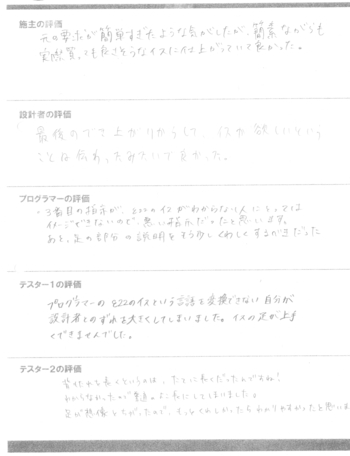 施主の評価
元の要求が簡単すぎたような気がしたが、簡素ながらも
実際買っても良さそうなイスに仕上がっていて良かった。
設計者の評価
最後のでき上がりからして、イスが欲しいという
ことは伝わったみたいで良かった。
プログラマーの評価
・3番目の指示が、のイスがわからない人にとっては
イメージできないので、悪い指示だったと思います。
あと、足の部分の説明をもう少しくわしくするべきだった
テスター1の評価
プログラマーの のイスという言語を変換できない自分が
設計者とのずれを大きくしてしまいました。イスの足が上手
くできませんでした。
テスター2の評価
背もたれを長くというのは、たてに長くだったんですね!
わからなかったので普通の に してしまいました。
足が想像とちがったので、もっとくわしかったらわかりやすかったと思いま